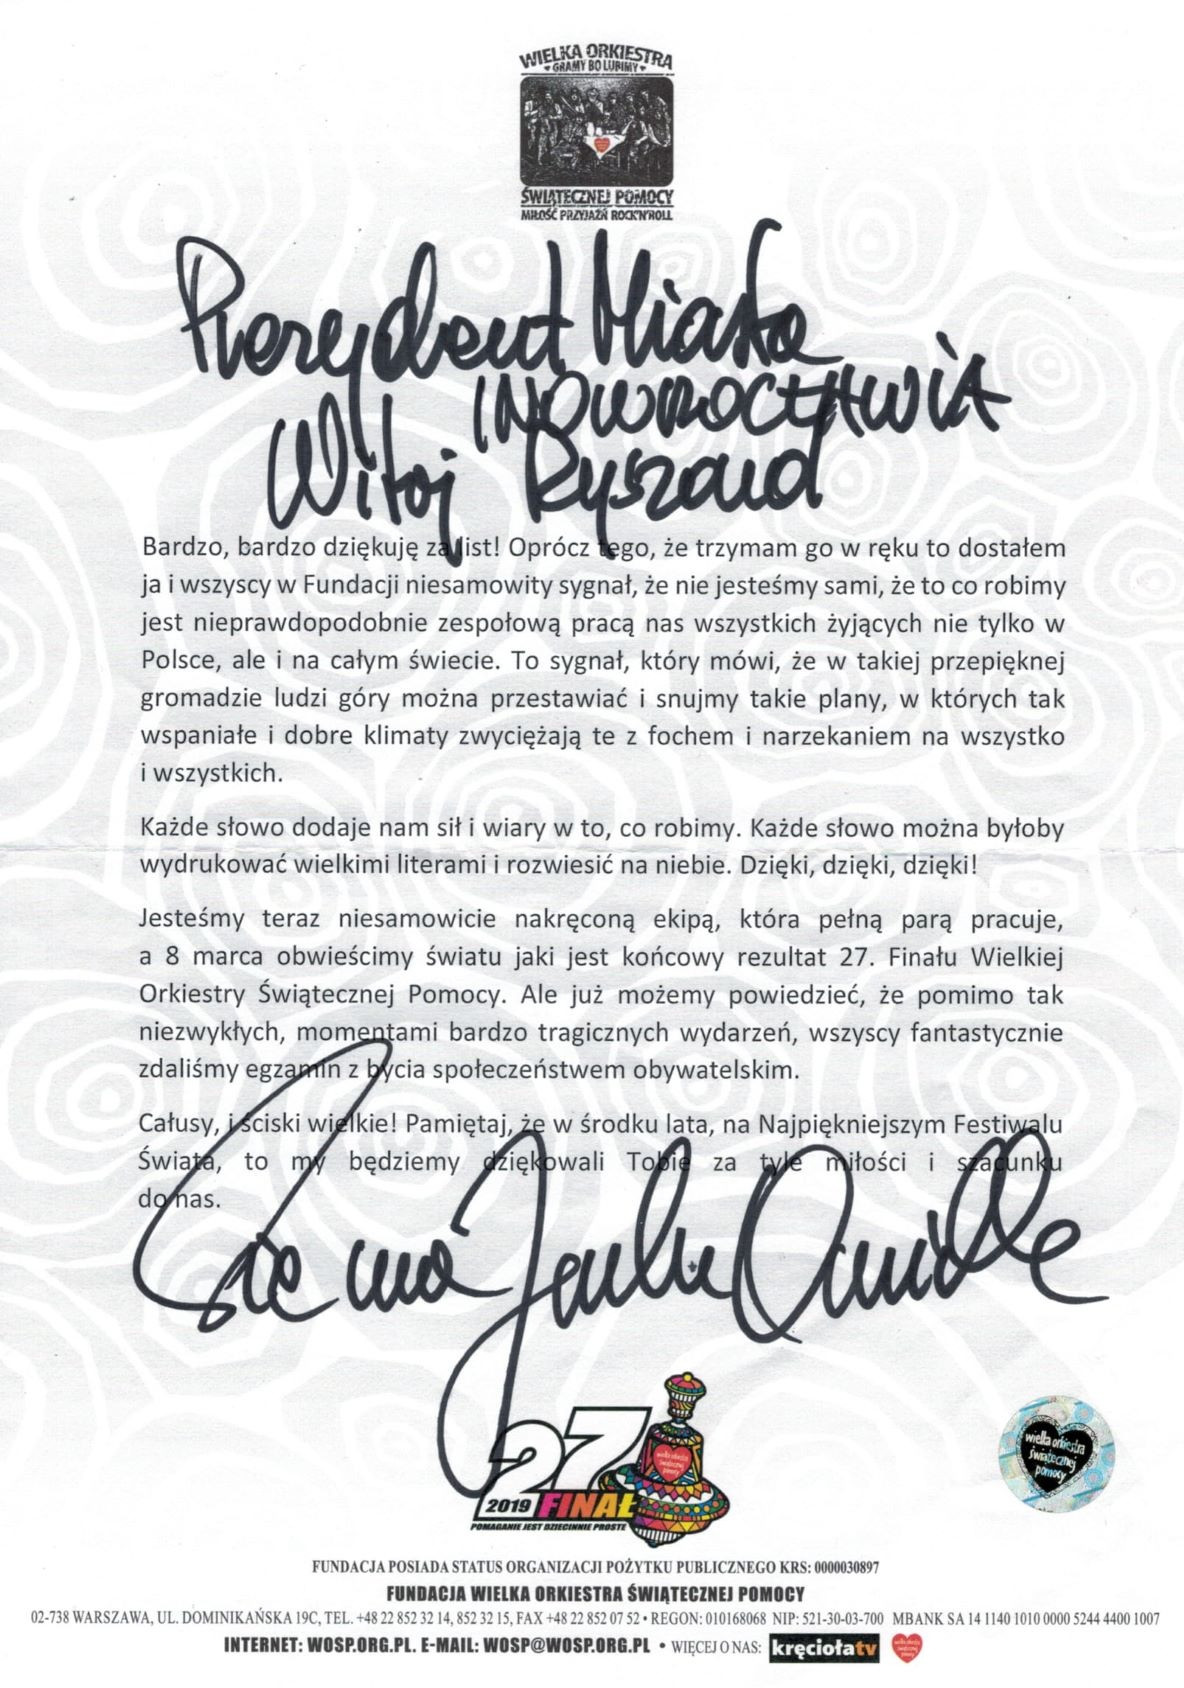 WIELKA ORKIESTRA
GRAMY BO LUBIMY
ŚWIĄTECZNEJ POMOCY
MIŁOŚĆ PRZYJAŹŃ ROCK'N'ROLL
Prezydent Miasta
INOWROCŁAWIA
Witaj Ryszard
Bardzo, bardzo dziękuję za list! Oprócz tego, że trzymam go w ręku to dostałem
ja i wszyscy w Fundacji niesamowity sygnał, że nie jesteśmy sami, że to co robimy
jest nieprawdopodobnie zespołową pracą nas wszystkich żyjących nie tylko w
Polsce, ale i na całym świecie. To sygnał, który mówi, że w takiej przepięknej
gromadzie ludzi góry można przestawiać i snujmy takie plany, w których tak
wspaniałe i dobre klimaty zwyciężają te z fochem i narzekaniem na wszystko
i wszystkich.
Każde słowo dodaje nam sił i wiary w to, co robimy. Każde słowo można byłoby
wydrukować wielkimi literami i rozwiesić na niebie. Dzięki, dzięki, dzięki!
Jesteśmy teraz niesamowicie nakręconą ekipą, która pełną parą pracuje,
a 8 marca obwieścimy światu jaki jest końcowy rezultat 27. Finału Wielkiej
Orkiestry Świątecznej Pomocy. Ale już możemy powiedzieć, że pomimo tak
niezwykłych, momentami bardzo tragicznych wydarzeń, wszyscy fantastycznie
zdaliśmy egzamin z bycia społeczeństwem obywatelskim.
Całusy, i ściski wielkie! Pamiętaj, że w środku lata, na Najpiękniejszym Festiwalu
Świata, to my będziemy dziękowali Tobie za tyle miłości i szacunku
do nas.
Sie ma Jurek Owsiak
27
2019 FINAŁ
POMAGANIE JEST DZIECINNIE PROSTE
wielka orkiestra
świątecznej
pomocy
wielka orkiestra
świątecznej
pomocy
FUNDACJA POSIADA STATUS ORGANIZACJI POŻYTKU PUBLICZNEGO KRS: 0000030897
FUNDACJA WIELKA ORKIESTRA ŚWIĄTECZNEJ POMOCY
02-738 WARSZAWA, UL. DOMINIKAŃSKA 19C, TEL. +48 22 852 32 14, 852 32 15, FAX +48 22 852 07 52 • REGON: 010168068 NIP: 521-30-03-700 MBANK SA 14 1140 1010 0000 5244 4400 1007
INTERNET: WOSP.ORG.PL. E-MAIL: WOSP@WOSP.ORG.PL • WIĘCEJ O NAS: kręciołatv